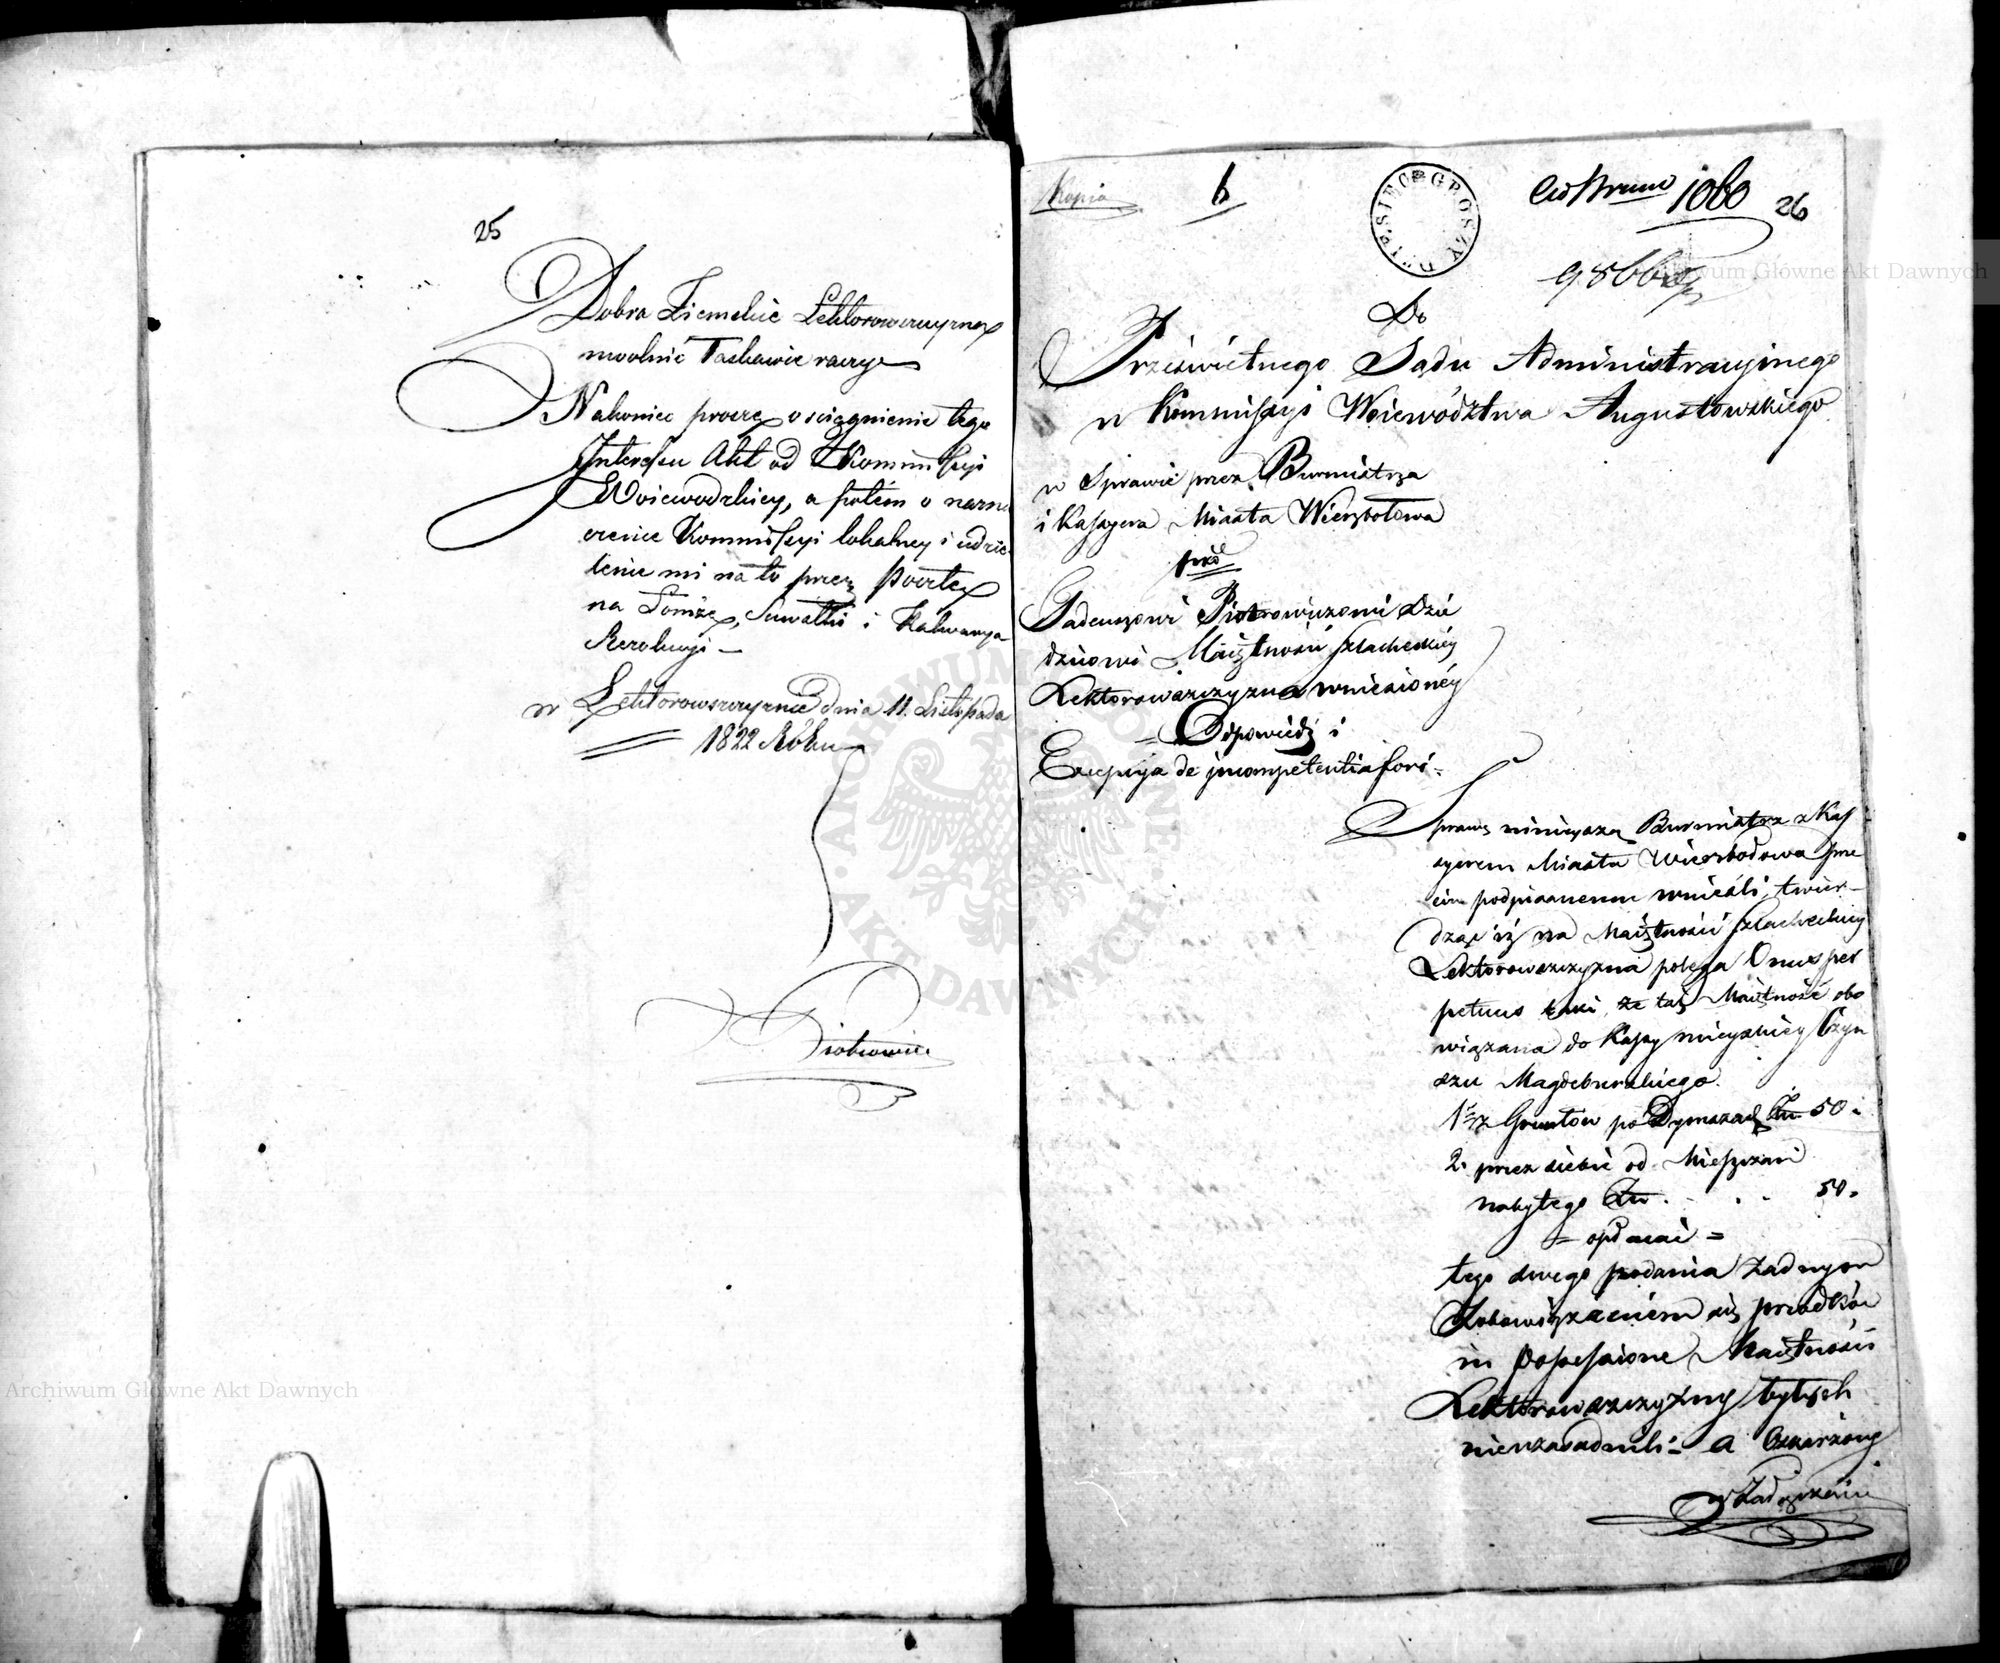 25
Dobra Ziemskie Lektorowszczyznę
uwolnić Taskawie raczy
Nakoniec proszę o sciągnienie tego
Interessu Akt od Kommissyi
Woiewodzkiey, a potém o nazna
czenie Kommissyi lokalney i udzie
lenie mi na to przez Pocztę
na Łomżę, Suwałki i Kalwaryą
Rezolucyi —
w Lektorowszczyznie dnia 11. Listopada
1822 Roku
Piotrowicz
Kopia
6
DZIESIĘC GROSZY
1060
26
Do
Prześwietnego Sądu Administracyinego
w Kommissyi Woiewództwa Augustowskiego
w Sprawie przez Burmistrza
i Kassyera Miasta Wierzbołowa
Tadeuszowi Piotrowiczowi dzie
dzicowi Maiętności szlacheckiéy
Lektorowszczyzna wniesionéy
Odpowiedź i
Excepcyia de incompetentia fori
Sprawę ninieyszą Burmistrz z Kas
syerem Miasta Wierzbołowa prze
ciw podpisanemu wnieśli, twier-
dząc iż na Maiętności szlacheckiey
Lektorowszczyzna polega Onus per
petuus taki, że taż Maiętność obo
wiązana do Kassy mieyskiéy Czyn
szu Magdeburskiego
50
2. przez siebie od Mieszczan
nabytego . . . 50.
= opłacać =
tego swego podania żadnym
Zobowiązaniem się przodków
in possessione Maiętności
Lektorowszczyzny byłych
nieuzasadnili - a Oskarżony
w Zadosyć
Archiwum Główne Akt Dawnych
Archiwum Główne Akt Dawnych
ARCHIWUM GŁÓWNE AKT DAWNYCH